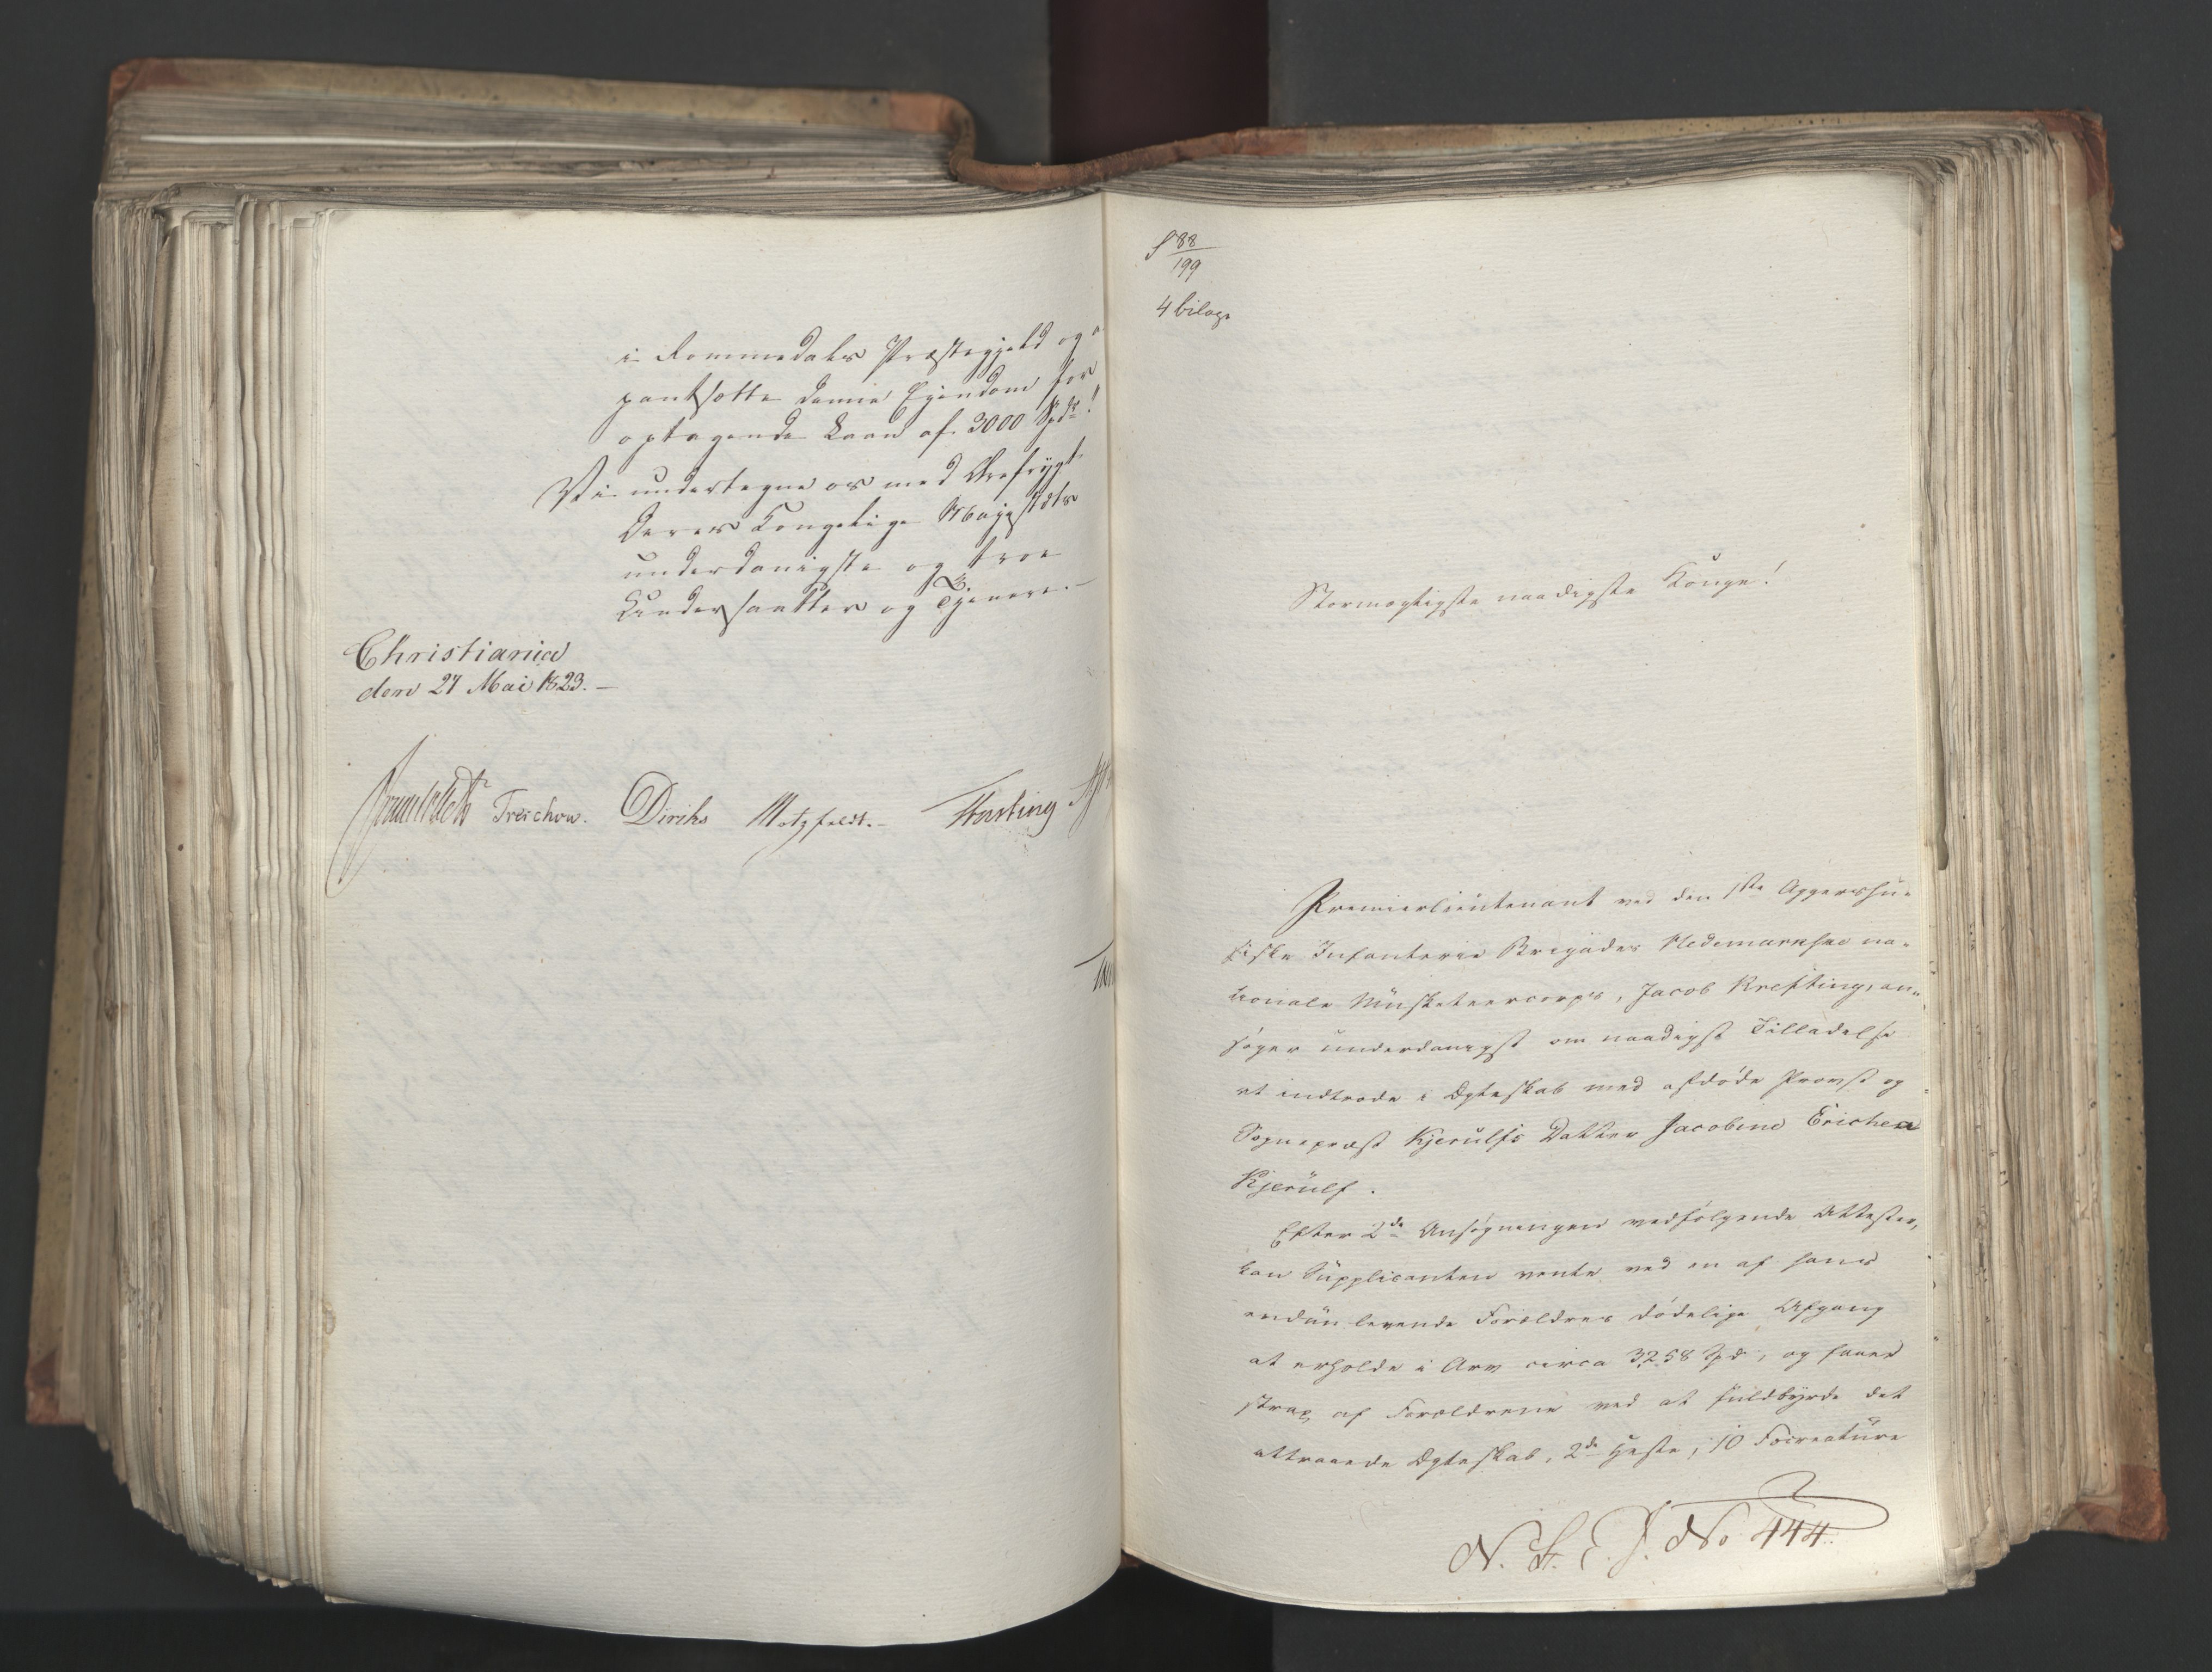 i Rommedals Præstegjeld og
pantsætte denne Eiendom for
optagende Laan af 3000 Spdr!
Vi undertegne os med Ærefrygt
Deres Kongelige Majestæts
underdanigste og troe
Undersaatter og Tjenere.
Christiania
den 27 Mai 1823.
Treschow. Diriks Motzfeldt. Fasting
§ 88
199
4 bilage
Stormægtigste naadigste Konge!
Premierlieutenant ved den 1ste Aggershu-
siske Infanterie Brigades Hedemarkske na-
tionale Musketeercorps, Jacob Krefting, an-
søger underdanigst om naadigst Tilladelse
at indtræde i Ægteskab med afdøde Provst og
Sognepræst Kjerulfs Datter Jacobine Erichea
Kjerulf.
Efter 2de Ansøgningen vedfølgende Attester,
kan Supplicanten vente ved en af hans
endnu levende Forældres dødelige Afgang
at erholde i Arv circa 3258 Spd, og faaer
strax af Forældrene ved at fuldbyrde det
attraaede Ægteskab, 2de Heste, 10 Fæcreature
N. St. E. J. No 444.